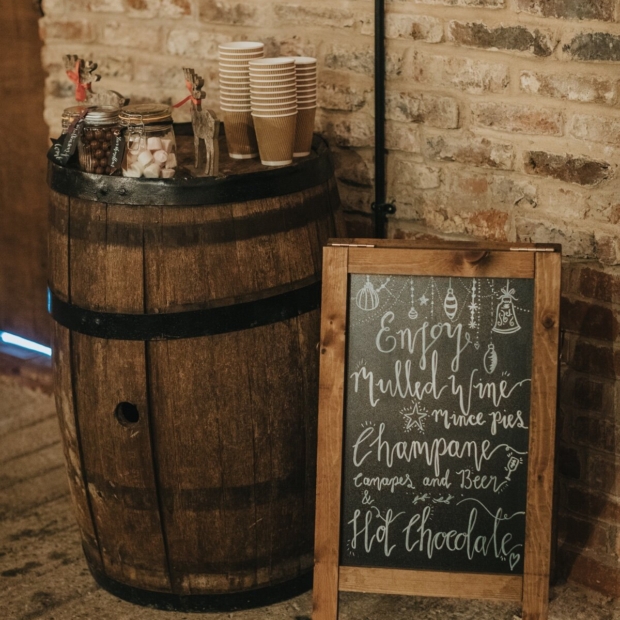 Enjoy
Mulled Wine
Mince pies
Champane
Canapes and Beer
&
Hot Chocolate